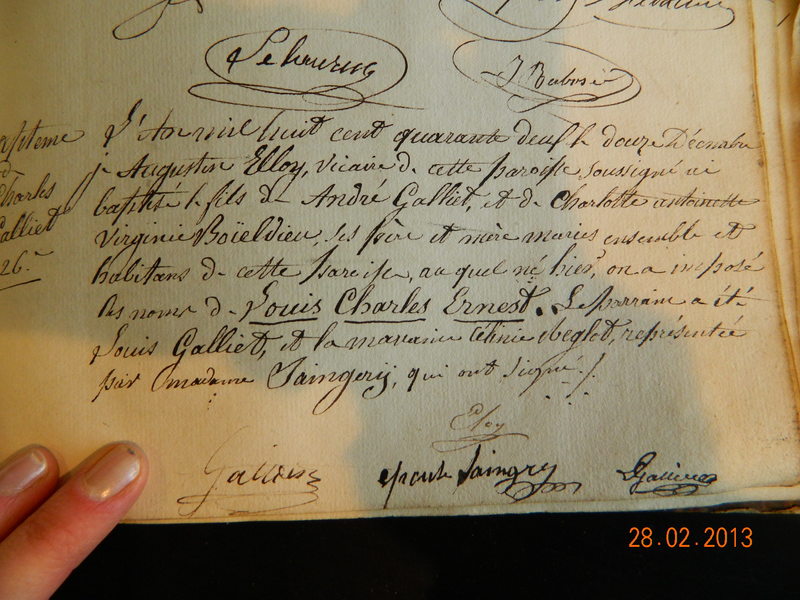 J. Dubosc
Baptême
Charles
Galliet
26.e
L'An mil huit cent quarante deuf le douze Décembre
je Augustin Elloy, vicaire de cette paroisse, soussigné ai
baptisé le fils de André Galliet, et de Charlotte antoinette
Virginie Boïeldieu, ses père et mère mariés ensemble et
habitans de cette paroisse, auquel né hier, on a imposé
les noms de Louis Charles Ernest. Le parrain a été
Louis Galliet, et la maraine Célinie représentée
par madame Saingery, qui ont signé./.
Eloy
épouse Saingry